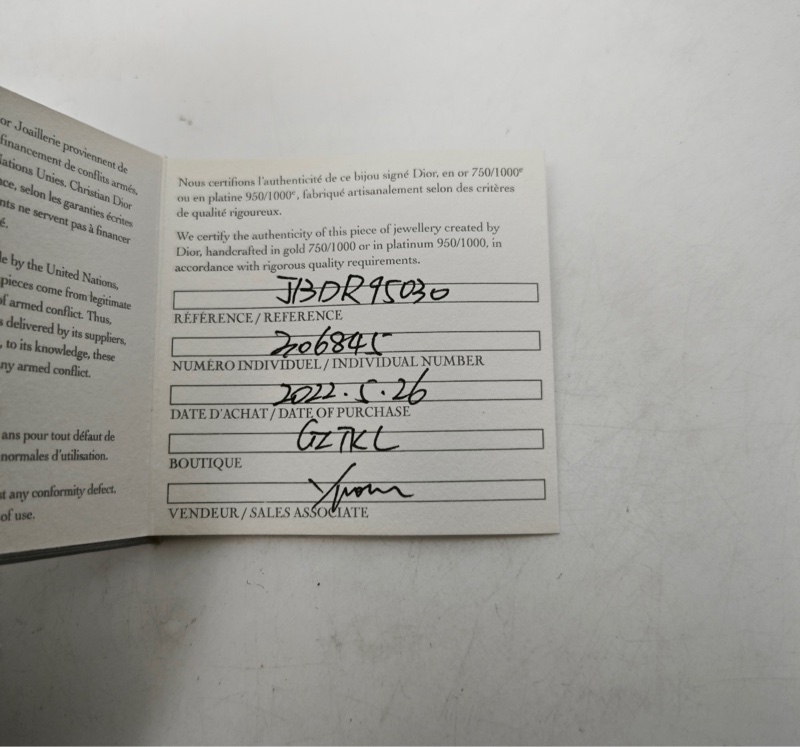 or Joaillerie proviennent de
financement de conflits armés,
ations Unies. Christian Dior
nce, selon les garanties écrites
nts ne servent pas à financer
é.
le by the United Nations,
pieces come from legitimate
of armed conflict. Thus,
s delivered by its suppliers,
, to its knowledge, these
ny armed conflict.
ans pour tout défaut de
normales d'utilisation.
st any conformity defect,
of use.
Nous certifions l'authenticité de ce bijou signé Dior, en or 750/1000e
ou en platine 950/1000e, fabriqué artisanalement selon des critères
de qualité rigoureux.
We certify the authenticity of this piece of jewellery created by
Dior, handcrafted in gold 750/1000 or in platinum 950/1000, in
accordance with rigorous quality requirements.
JBDR95030
RÉFÉRENCE / REFERENCE
2306845
NUMÉRO INDIVIDUEL / INDIVIDUAL NUMBER
2022.5.26
DATE D'ACHAT / DATE OF PURCHASE
GZTKL
BOUTIQUE
VENDEUR / SALES ASSOCIATE